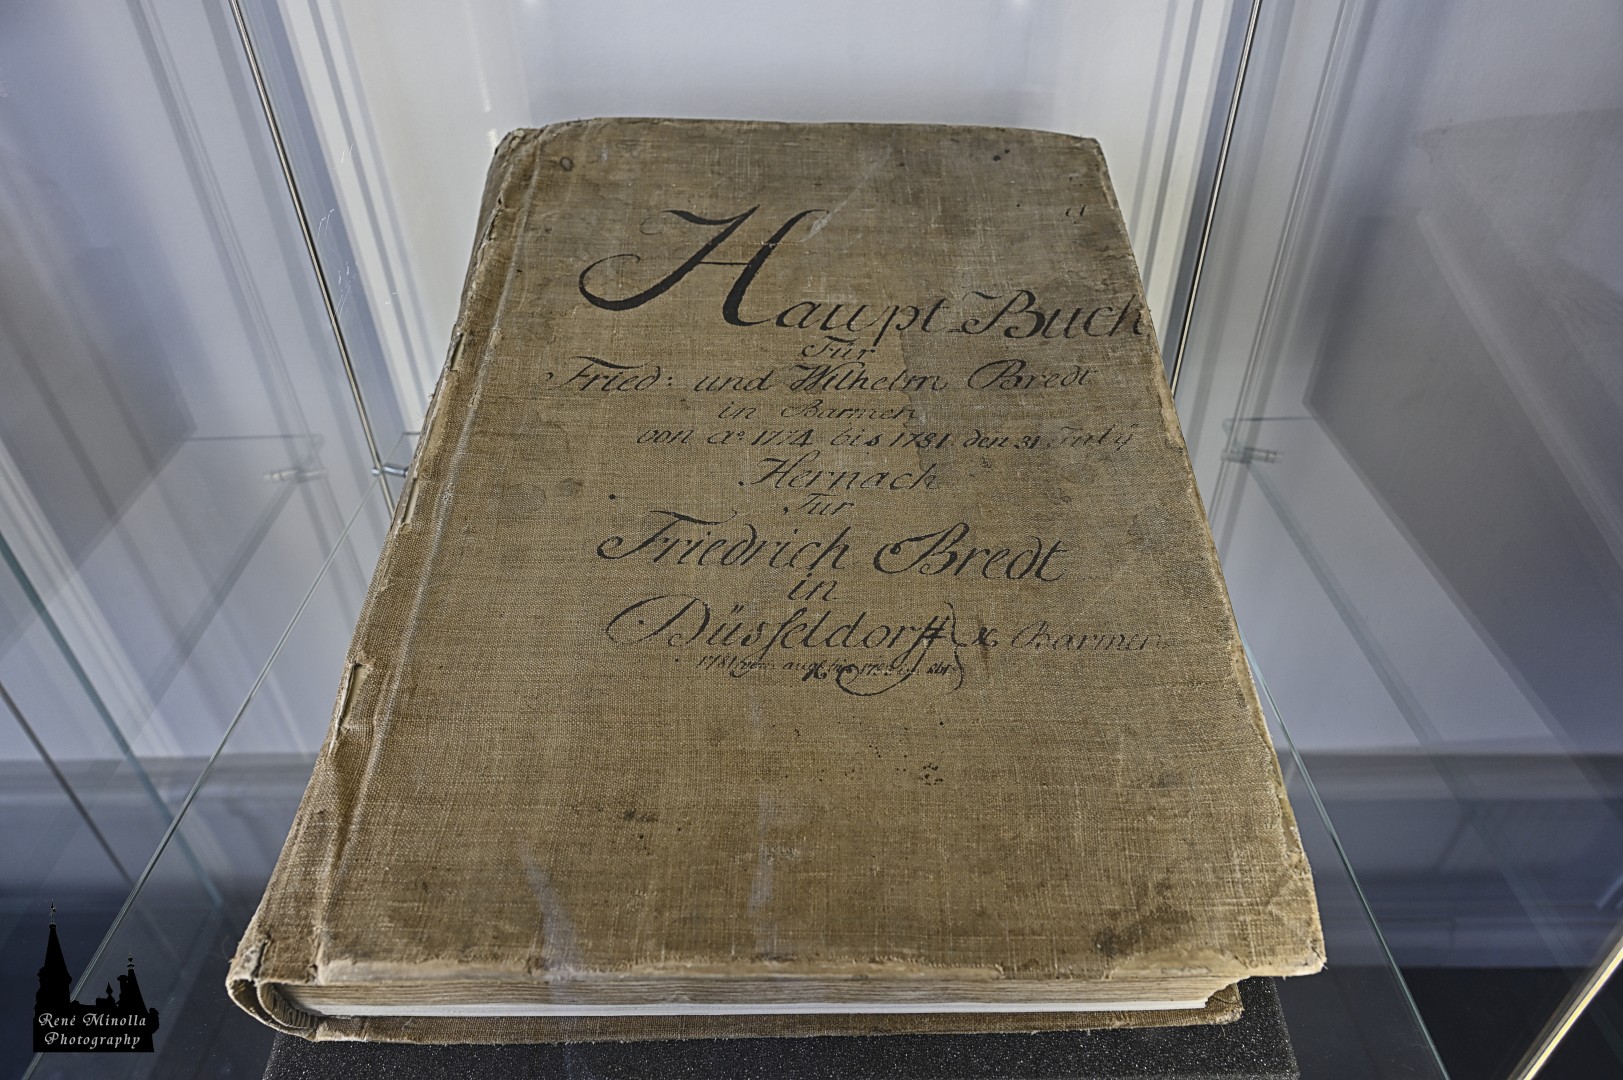 Haupt-Buch
Für
Fried: und Wilhelm Bredt
in Barmen
von Aº 1774 bis 1781 den 31 July
Hernach
Für
Friedrich Bredt
in
Düsseldorff & Barmen
1781
René Minolla
Photography